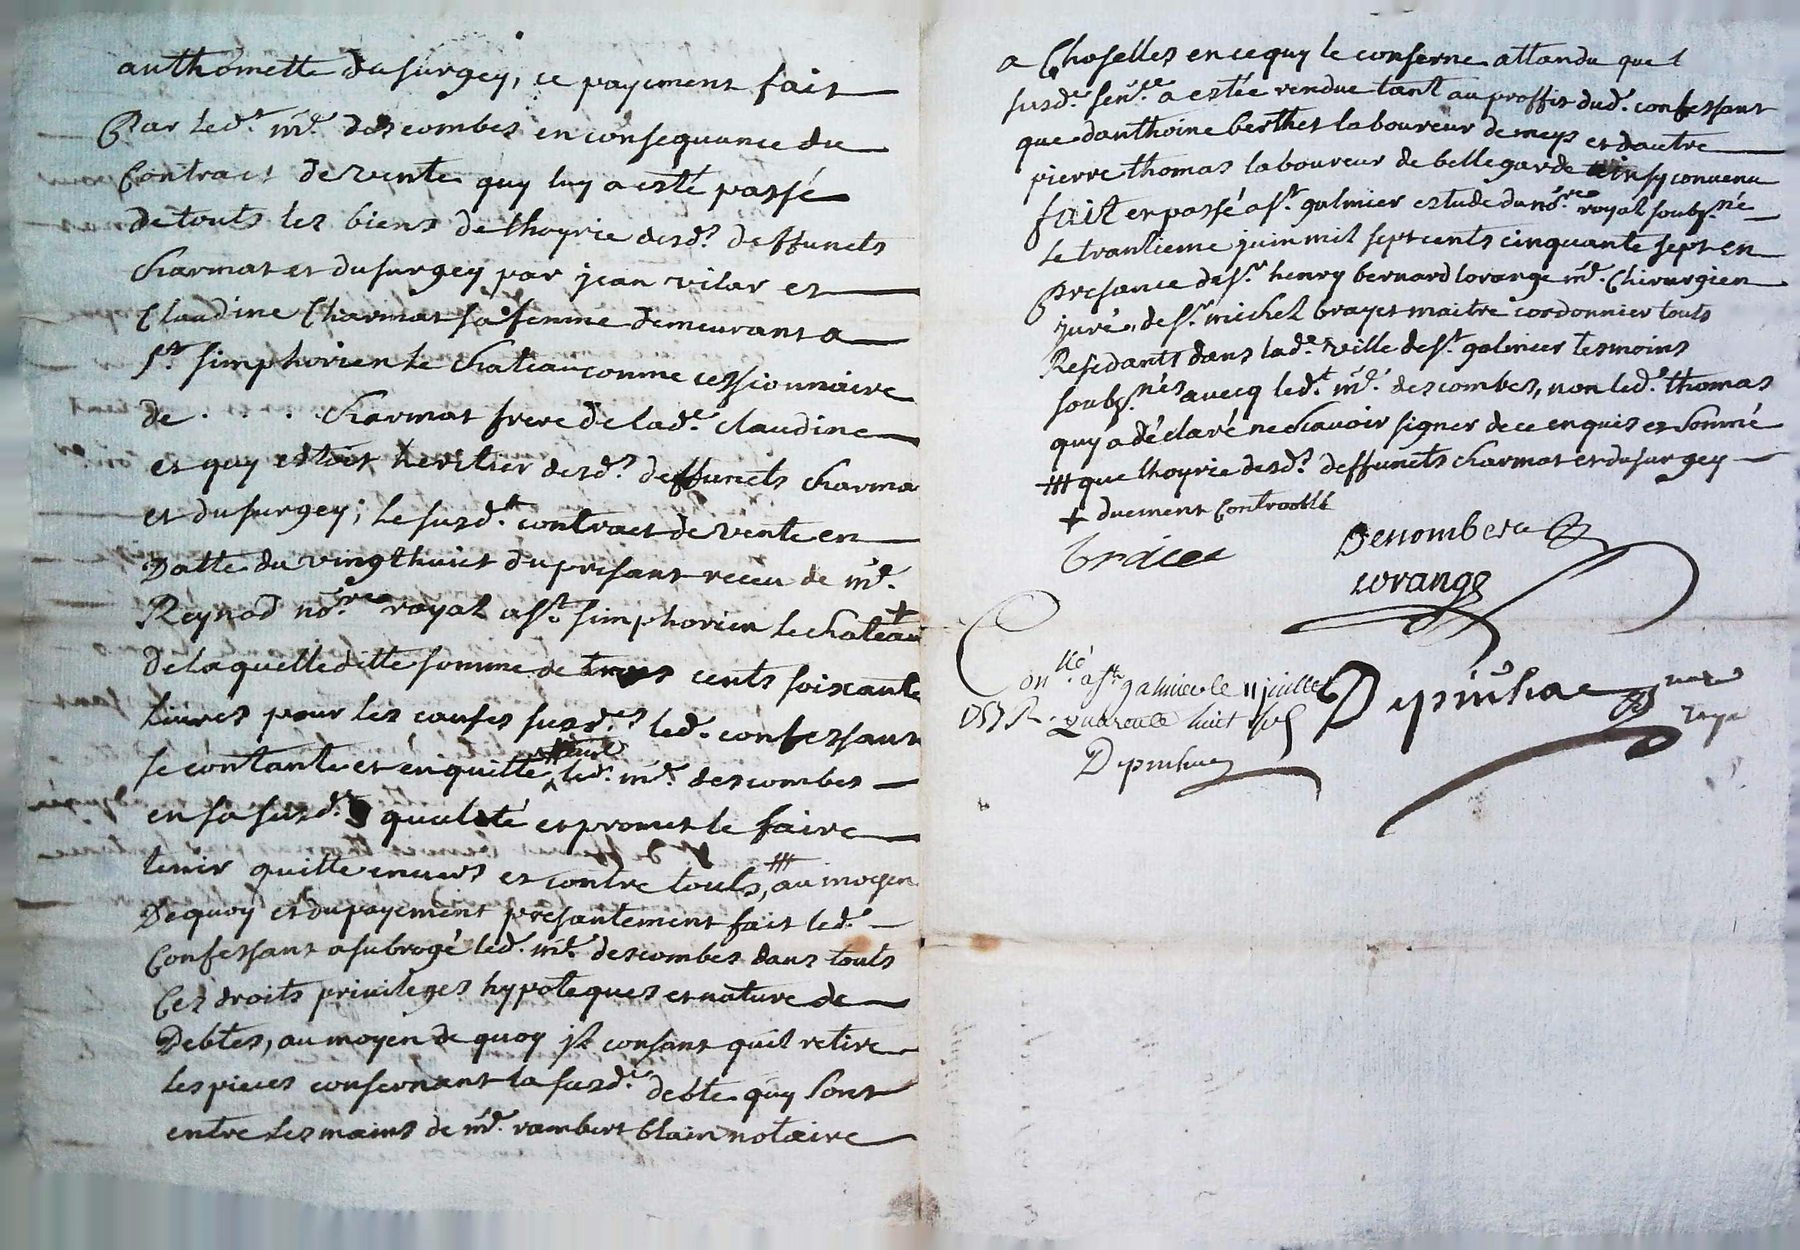 anthomette dusurgey, ce payement fait
Par led.t m.e descombes en consequance du
Contract de vente quy luy a esté passé
de touts les biens de lhoyrie desd.s deffuncts
charmat et dusurgey par jean vilar et
Claudine Charmat sa femme demeurant a
S.t simphorien le chateau comme cessionnaire
de . . . charmat frere de lad.e claudine
et quy estoit heritier desd.s deffuncts charma
et dusurgey; le susd.t contract de vente en
Datte du vingthuict du presant receu de m.e
Reynod no.re royal a S.t simphorien le chateau +
De laquelle ditte somme de trois cents soixante
livres pour les causes susd.es led. confessant
se contante et en quitte, led. m.e descombes
en sa susd.e qualité et promet le faire
tenir quitte envers et contre touts, ## au moyen
De quoy et du payement presantement fait led.
Confessant a subrogé led. m.e descombes dans touts
Ces droits privileges hypoteques et nature de
Debtes, au moyen de quoy il consant quil retire
les pieces consernant la susd.e debte quy sont
entre les mains de m.e rambert blain notaire
a Choselles en ce quy le conserne attandu que l
susd.e sen.ce a estée rendue tant au proffit dud. confessant
que danthoine berthet laboureur de meys et dautre
pierre thomas laboureur de bellegarde ainsy convenu
fait et passé a S.t galmier estude du no.re royal soubz.né
le trantieme juin mil sept cents cinquante sept en
Presance de s.r henry bernard lorange m.e Chirurgien
juré, de s.r michel brayet maitre cordonnier touts
Residants dans lad.e ville de S.t galmier tesmoins
soubz.nés avecq led.t m.e descombes, non led.t thomas
quy a déclaré ne scavoir signer de ce enquis et sommé
## que lhoyrie desd.s deffuncts charmat et dusurgey
+ duement Controollé
lorange
Con.llé a S.t galmier le 11 juillet
1757 R. quarante huit sols